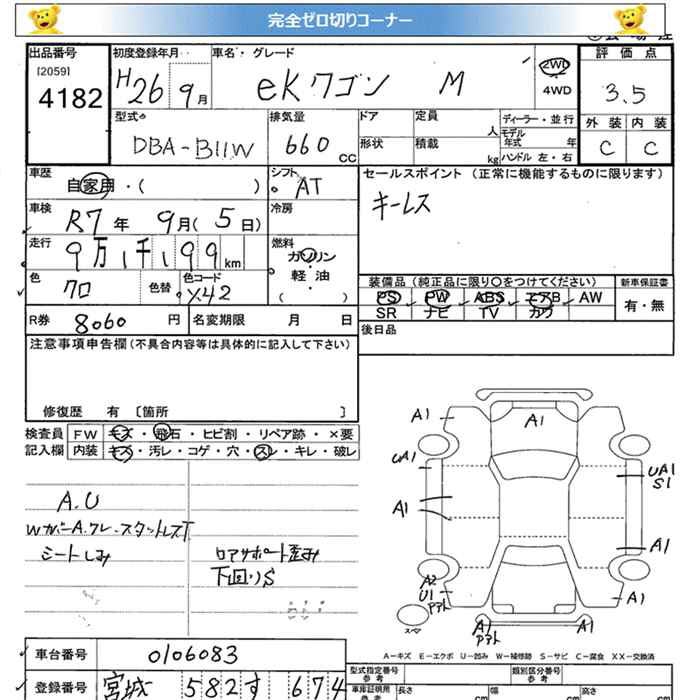 完全ゼロ切りコーナー
出品番号
[2059]
4182
初度登録年月
H26 9月
車名・グレード
eKワゴン M
2WD
4WD
評価点
3.5
外装 内装
C C
型式
DBA-B11W
排気量
660 CC
ドア
形状
定員 人
積載 kg
ディーラー・並行
モデル年式 年
ハンドル 左・右
車歴
自家用・( )
シフト
AT
車検
R7年 9月(5日)
冷房
走行
9万1千199km
燃料
ガソリン
・
軽・油
( )
色
クロ
色替
色コード
X42
R券 8060 円
名変期限 月 日
セールスポイント (正常に機能するものに限ります)
キーレス
装備品(純正品に限り○をつけてください) 新車保証書
PS PW ABS エアB AW
SR ナビ TV カワ
有・無
後日品
注意事項申告欄(不具合内容等は具体的に記入して下さい)
修復歴 有 〔箇所 〕
検査員 FW キズ・飛石・ヒビ割・リペア跡・×要
記入欄 内装 キズ・汚レ・コゲ・穴・スレ・キレ・破レ
A.U
WカバーA.クレ-スタットレスT
シートしみ
コアサポート歪み
下回りS
A1
A1
A1
UA1
UA1
S1
A1
A1
A2
U1
アト
A1
スペア
A1
アト
A1
A-キズ E-エクボ U-凹み W-補修跡 S-サビ C-腐食 XX-交換済
車台番号 0106083
登録番号 宮城 582 す 674
型式指定番号
参考
類別区分番号
参考
車庫証明用
参考
長さ cm
幅 cm
高さ cm